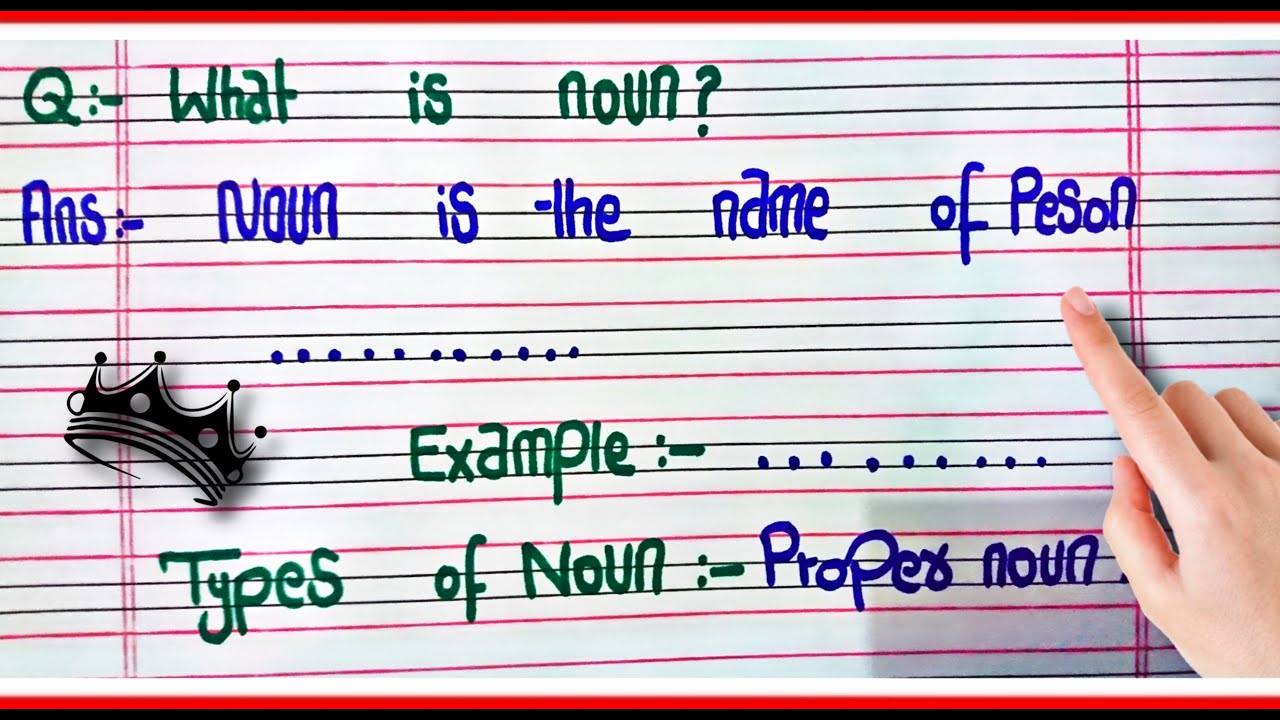 Q:- What is noun?
Ans:- Noun is the name of Peson
...........
Example :- ..........
Types of Noun :- Proper noun.